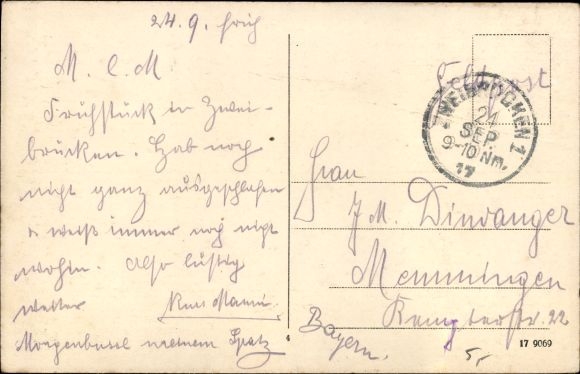 24. 9. früh
M. l. M
Frühstück in Zwei-
brücken. Hab noch
nicht ganz ausgeschlafen
u weiß immer noch nicht
wohin. Also lustig
weiter
Morgenbussel meinem Spatz
Feldpost
ZWEIBRÜCKEN 1
SEP.
9-10 Nm.
17
Frau
J. M. Dinvanger
Memmingen
22
Bayern.
17 9069
5,-